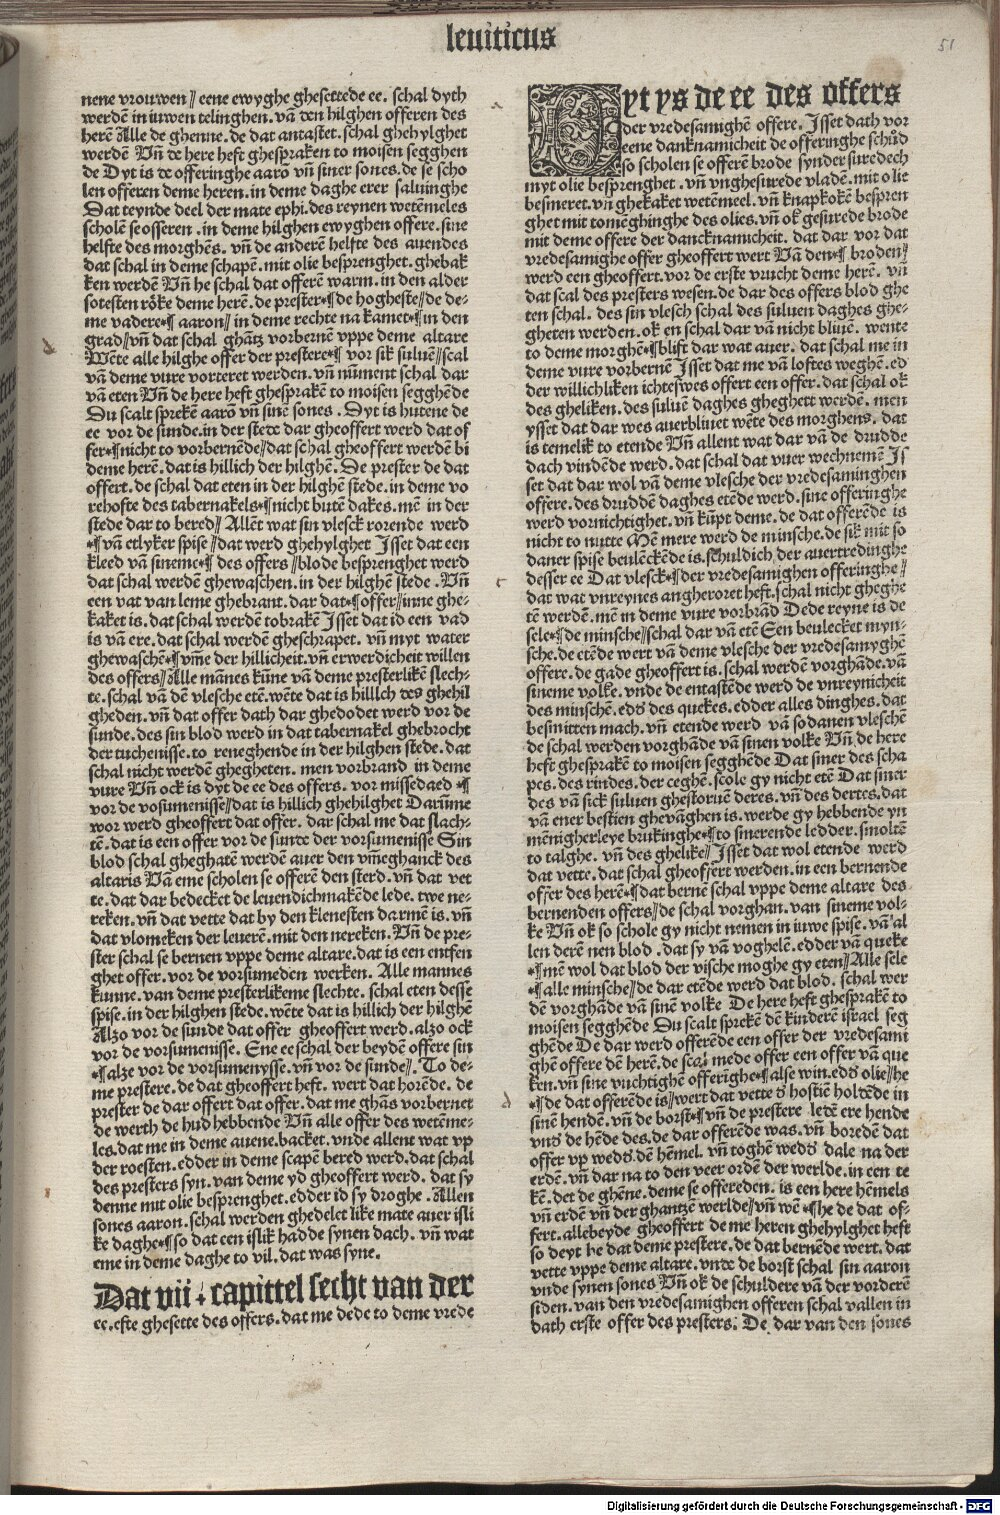 leuiticus
51
nene vrouwen // eene ewyghe ghesettede ee. schal dyth
werdē in iuwen telinghen. vā den hilghen offeren des
herē Alle de ghenne. de dat antastet. schal ghehylghet
werdē Vn̄ de here heft ghespraken to moisen segghen
de Dyt is de offeringhe aarō vn̄ siner sones. de se scho
len offeren deme heren. in deme daghe erer saluinghe
Dat teynde deel der mate ephi. des reynen wetēmeles
scholē se offeren. in deme hilghen ewyghen offere. sine
helfte des morghēs. vn̄ de anderē helfte des auendes
dat schal in deme schapē. mit olie besprenghet. ghebak
ken werdē Vn̄ he schal dat offerē warm. in den alder
sotesten rōke deme herē. de prester*¶ de hogheste // de de-
me vadere*¶ aaron // in deme rechte na kamet*¶ in den
grad // vn̄ dat schal ghātz vorbernē vppe deme altare
Wēte alle hilghe offer der prestere*¶ vor sik suluē // scal
vā deme vure vorteret werden. vn̄ nūment schal dar
vā eten Vn̄ de here heft ghesprakē to moisen segghēde
Du scalt sprekē aarō vn̄ sinē sones. Dyt is hutene de
ee vor de sunde. in der stede dar gheoffert werd dat of
fer*¶ nicht to vorbernēde // dat schal gheoffert werdē bi
deme herē. dat is hillich der hilghē. De prester de dat
offert. de schal dat eten in der hilghē stede. in deme vo
rehofte des tabernakels*¶ nicht butē dakes. mē in der
stede dar to bered // Allēt wat sin vlesck rorende werd
*¶ vā etlyker spise // dat werd ghehylghet Isset dat een
kleed vā sineme*¶ des offers // blode besprenghet werd
dat schal werdē ghewaschen. in der hilghē stede. Vn̄
een vat van leme ghebrant. dar dat*¶ offer // inne ghe-
kaket is. dat schal werdē tobrakē Isset dat id een vad
is vā ere. dat schal werdē gheschrapet. vn̄ myt water
ghewaschē*¶ vm̄e der hillicheit. vn̄ erwerdicheit willen
des offers // Alle mānes kūne vā deme presterlikē slech-
te. schal vā dē vlesche etē. wēte dat is hilllch des ghehil
gheden. vn̄ dat offer dath dar ghedodet werd vor de
sunde. des sin blod werd in dat tabernakel ghebrocht
der tuchenisse. to reneghende in der hilghen stede. dat
schal nicht werdē ghegheten. men vorbrand in deme
vure Vn̄ ock is dyt de ee des offers. vor missedaed *¶
vor de vosumenisse // dat is hillich ghehilghet Darūme
wor werd gheoffert dat offer. dar schal me dat slach-
tē. dat is een offer vor de sunde der vorsumenisse Sin
blod schal gheghatē werdē auer den vm̄eghanck des
altaris Vā eme scholen se offerē den sterd. vn̄ dat vet
te. dat dar bedecket de leuendichmakēde lede. twe ne-
reken. vn̄ dat vette dat by den klenesten darmē is. vn̄
dat vlomeken der leuerē. mit den nereken. Vn̄ de pre-
ster schal se bernen vppe deme altare. dat is een entfen
ghet offer. vor de vorsumeden werken. Alle mannes
kunne. van deme presterlikeme slechte. schal eten desse
spise. in der hilghen stede. wēte dat is hillich der hilghē
Alzo vor de sunde dat offer gheoffert werd. alzo ock
vor de vorsumenisse. Ene ee schal der beydē offere sin
*¶ alze vor de vorsumenysse. vn̄ vor de sunde //. To de-
me prestere. de dat gheoffert heft. wert dat horēde. de
prester de dar offert dat offer. dat me ghās vorbernet
de werth de hud hebbende Vn̄ alle offer des wetēme-
les. dat me in deme auene. backet. vnde allent wat vp
der roesten. edder in deme scapē bered werd. dat schal
des presters syn. van deme yd gheoffert werd. dat sy
denne mit olie besprenghet. edder id sy droghe. Allen
sones aaron. schal werden ghedelet like mate auer isli
ke daghe*¶ so dat een islik hadde synen dach. vn̄ wat
eme in deme daghe to vil. dat was syne.
Dat vii. capittel secht van der
ee. efte ghesette des offers. dat me dede to deme vrede
Dyt ys de ee des offers
der vredesamighē offere. Isset dath vor
eene danknamicheit de offeringhe schūd
so scholen se offerē brode synder suredech
myt olie besprenghet. vn̄ vnghesurede vladē. mit olie
besmeret. vn̄ ghekaket wetēmeel. vn̄ knapkokē bespren
ghet mit tomēghinghe des olies. vn̄ ok gesurede brode
mit deme offere der dancknamicheit. dat dar vor dat
vredesamighe offer gheoffert wert Vā den*¶ broden //
werd een gheoffert. vor de erste vrucht deme herē. vn̄
dat scal des presters wesen. de dar des offers blod ghe
ten schal. des sin vlesch schal des suluen daghes ghe-
gheten werden. ok en schal dar vā nicht bliuē. wente
to deme morghē*¶ blift dar wat auer. dat schal me in
deme vure vorbernē Isset dat me vā loftes weghē. ed
der willichliken ichteswes offert een offer. dat schal ok
des gheliken. des suluē daghes ghegett werdē. men
ysset dat dar wes auerbliuet wēte des morghens. dat
is temelik to etende Vn̄ allent wat dar vā de drudde
dach vindēde werd. dat schal dat vuer wechnemē Is
set dat dar wol vā deme vlesche der vredesaminghen
offere. des druddē daghes etēde werd. sine offeringhe
werd vornichtighet. vn̄ kūpt deme. de dat offerēde is
nicht to nutte Mē mere werd de minsche. de sik mit so
daner spise beuleckēde is. schuldich der auertredinghe
desser ee Dat vlesck*¶ der vredesamighen offeringhe //
dat wat vnreynes angheroret heft. schal nicht gheghe
tē werdē. mē in deme vure vorbrād De de reyne is de
sele*¶ de minsche // schal dar vā etē Een beulecket myn-
sche. de etēde wert vā deme vlesche der vredesamyghē
offere. de gade gheoffert is. schal werdē vorghāde. vā
sineme volke. vnde de entastēde werd de vnreynicheit
des minschē. edd' des quekes. edder alles dinghes. dat
besmitten mach. vn̄ etende werd vā sodanen vleschē
de schal werden vorghāde vā sinen volke Vn̄ de here
heft ghesprakē to moisen segghēde Dat smer des scha
pes. des rindes. der ceghē. scole gy nicht etē Dat smer
des vā sick suluen ghestoruē deres. vn̄ des deres. dat
vā ener bestien ghevāghen is. werde gy hebbende yn
mēnigherleye brukinghe*¶ to smerende ledder. smoltē
to talghe. vn̄ des ghelike // Isset dat wol etende werd
dat vette. dat schal gheoffert werden. in een bernende
offer des herē*¶ dat bernē schal vppe deme altare des
bernenden offers // de schal vorghan. van sineme vol-
ke Vn̄ ok so schole gy nicht nemen in iuwe spise. vā al
len derē nen blod. dat sy vā voghelē. edder vā queke
*¶ mē wol dat blod der vische moghe gy eten // Alle sele
*¶ alle minsche // de dar etēde werd dat blod. schal wer
dē vorghāde vā sinē volke De here heft ghesprakē to
moisen segghēde Du scalt sprekē dē kinderē israel seg
ghēde De dar werd offerēde een offer der vredesami
ghē offere dē herē. de scal mede offer een offer vā que
ken. vn̄ sine vuchtighē offerīghe*¶ alse win. edd' olie // he
*¶ de dat offerēde is // wert dat vette d' hostiē holdēde in
sinē hendē. vn̄ de borst*¶ vn̄ de prestere ledē ere hende
vnd' de hēde des. de dar offerēde was. vn̄ boredē dat
offer vp wedd' dē hēmel. vn̄ toghē wedd' dale na der
erdē. vn̄ dar na to den veer ordē der werlde. in een te
kē. det de ghēne. deme se offereden. is een here hēmels
vn̄ erdē vn̄ der ghantzē werlde // vn̄ wē*¶ he de dat of-
fert. alle beyde gheoffert deme heren ghehylghet heft
so deyt he dat deme prestere. de dat bernēde wert. dat
vette vppe deme altare. vnde de borst schal sin aaron
vnde synen sones Vn̄ ok de schuldere vā der vorderē
siden. van den vredesamighen offeren schal vallen in
dath erste offer des presters. De dar van den sones
Digitalisierung gefördert durch die Deutsche Forschungsgemeinschaft - DFG